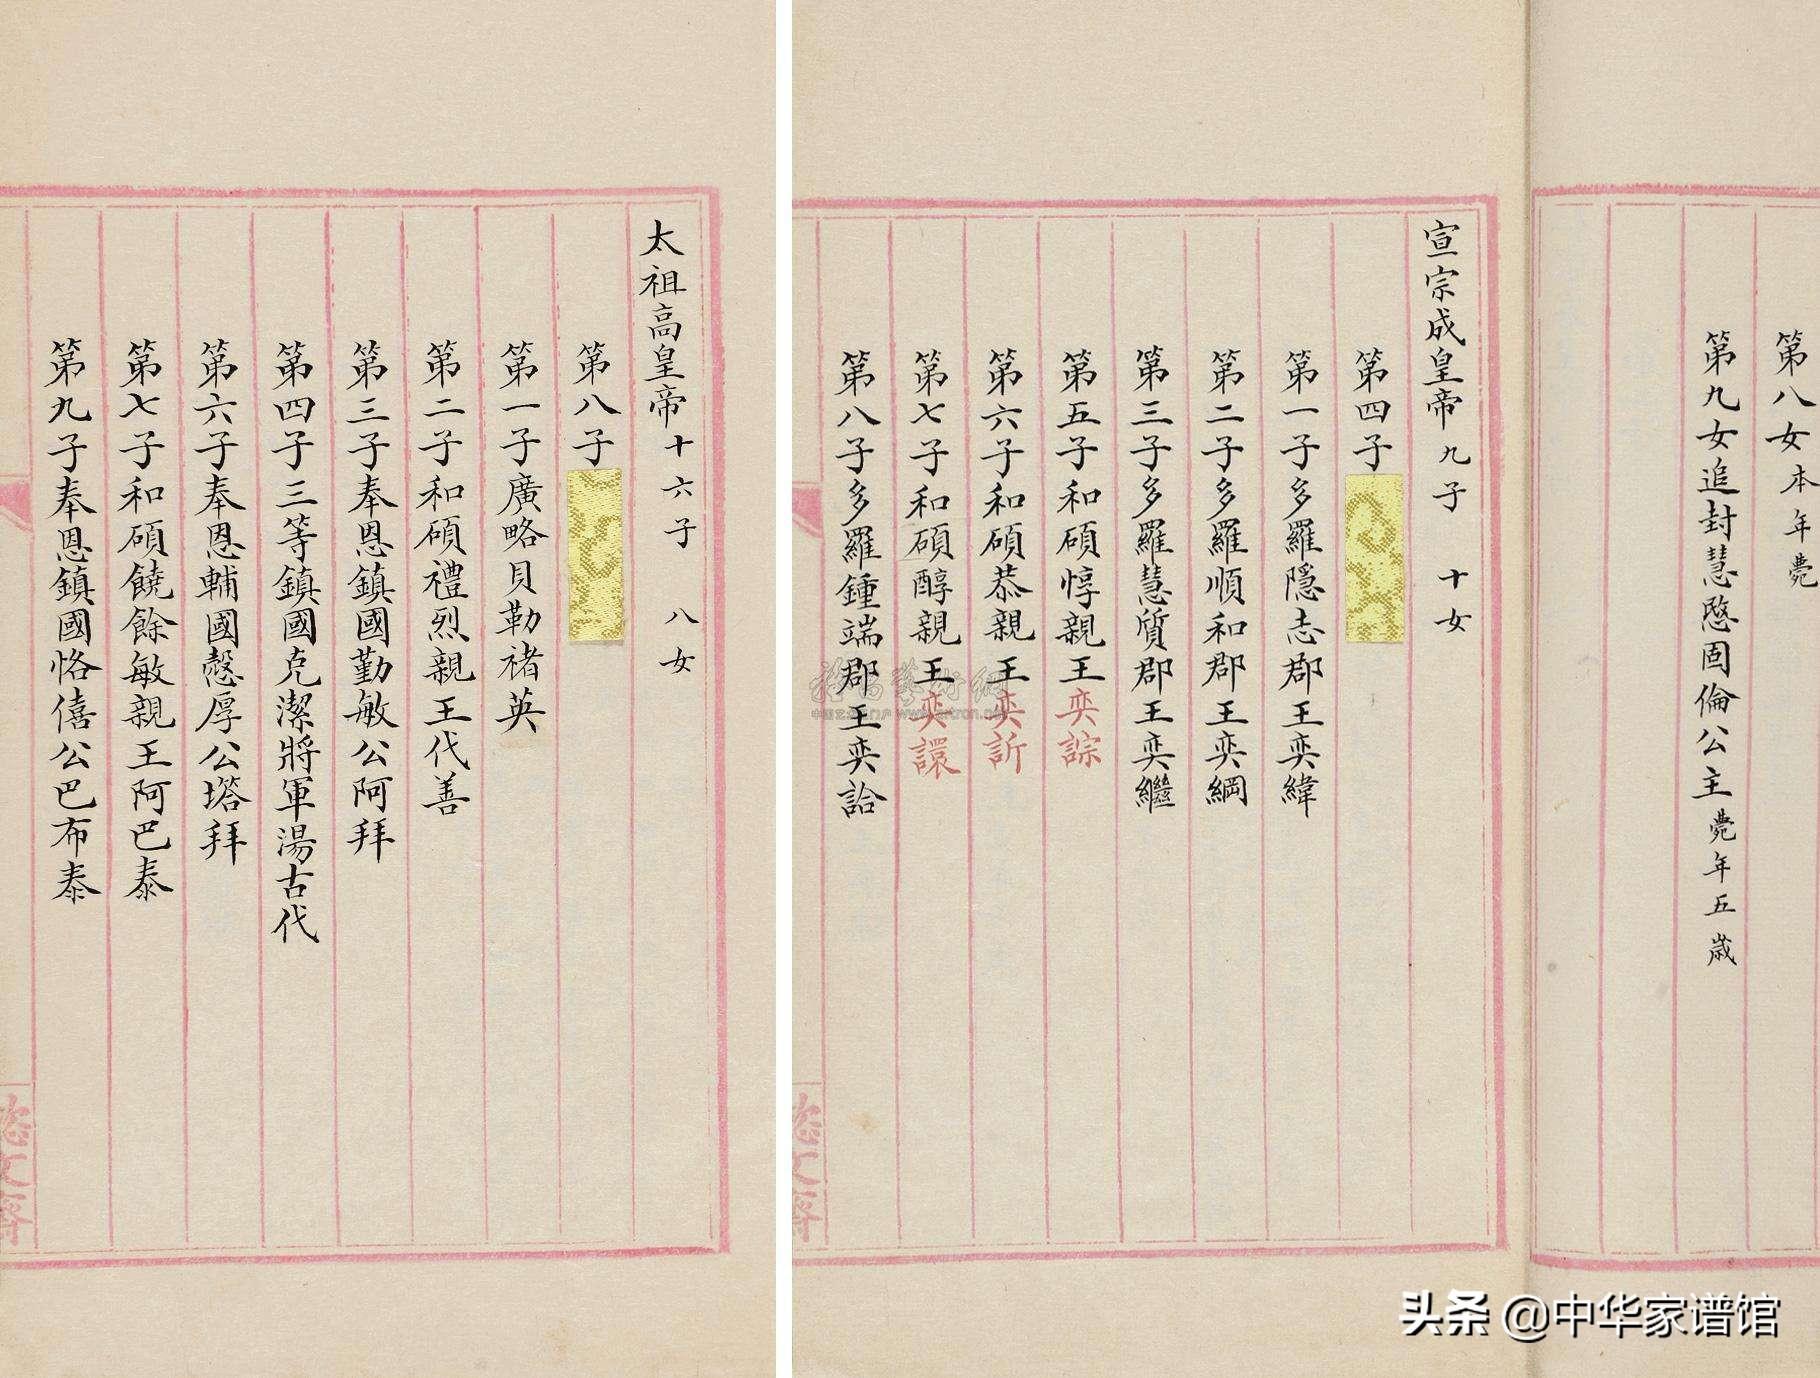 第八女本年薨
第九女追封慧愍固倫公主薨年五歲
宣宗成皇帝九子 十女
第四子
第一子多羅隱志郡王奕緯
第二子多羅順和郡王奕綱
第三子多羅慧質郡王奕繼
第五子和碩惇親王奕誴
第六子和碩恭親王奕訢
第七子和碩醇親王奕譞
第八子多羅鍾端郡王奕詥
太祖高皇帝十六子 八女
第八子
第一子廣略貝勒褚英
第二子和碩禮烈親王代善
第三子奉恩鎮國勤敏公阿拜
第四子三等鎮國克潔將軍湯古代
第六子奉恩輔國慤厚公塔拜
第七子和碩饒餘敏親王阿巴泰
第九子奉恩鎮國恪僖公巴布泰
头条 @中华家谱馆